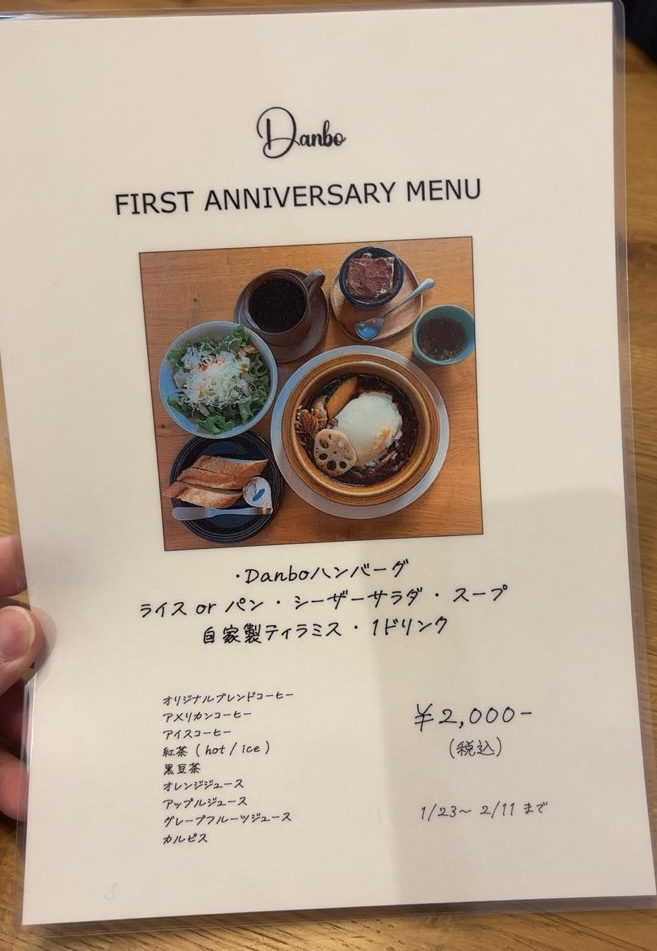 Danbo
FIRST ANNIVERSARY MENU
・Danboハンバーグ
ライス or パン ・ シーザーサラダ ・ スープ
自家製ティラミス ・ 1ドリンク
オリジナルブレンドコーヒー
アメリカンコーヒー
アイスコーヒー
紅茶 ( hot / ice )
黒豆茶
オレンジジュース
アップルジュース
グレープフルーツジュース
カルピス
¥2,000-
(税込)
1/23〜 2/11 まで